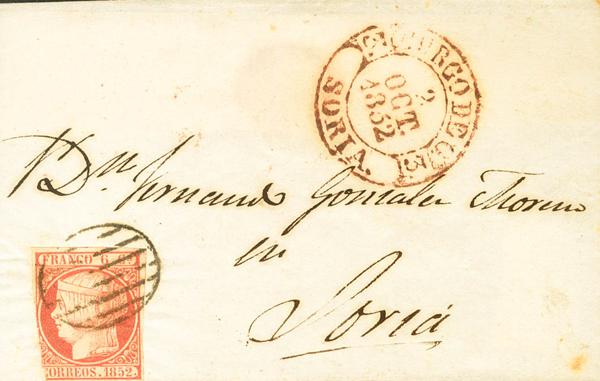 BURGO DE OS
2
OCT.
1852
SORIA
Dn. Fernando Gonzalez Moreno
en
Soria
FRANCO 6 CS
CORREOS. 1852.